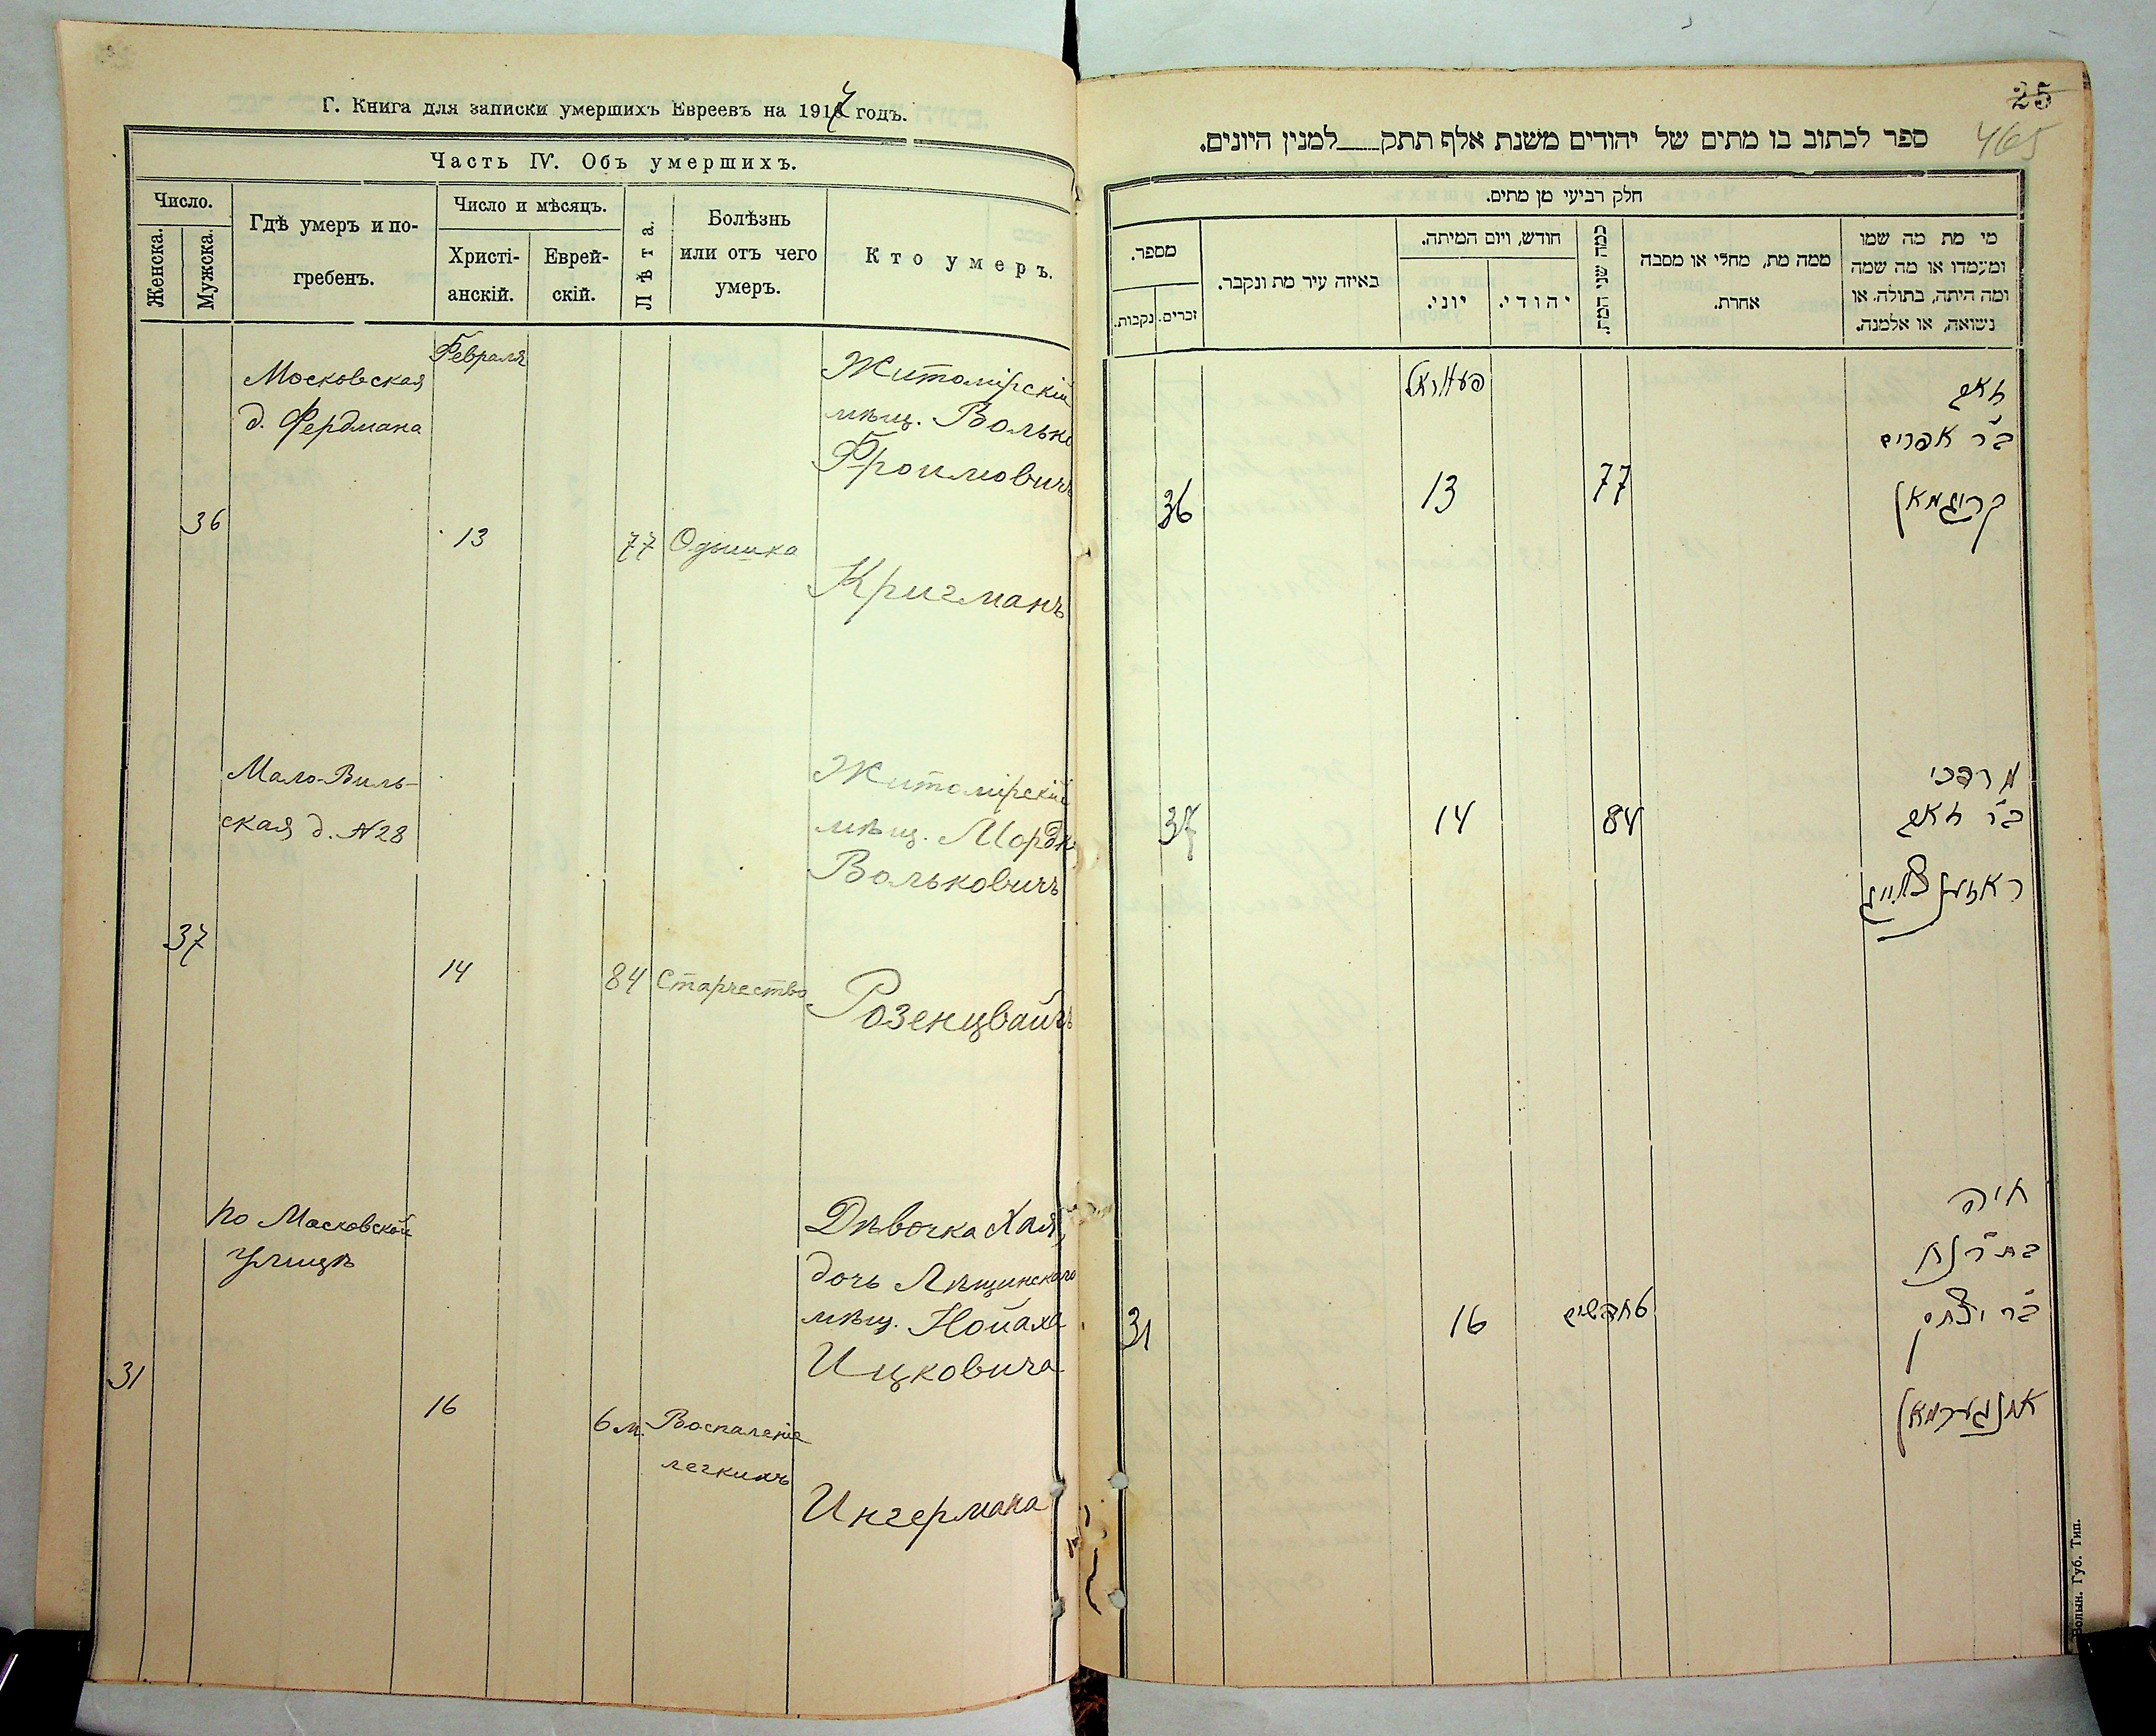 Г. Книга для записки умершихъ Евреевъ на 1917 годъ.
Часть IV. Объ умершихъ.
Число.
Женска.
Мужска.
Гдѣ умеръ и по-
гребенъ.
Число и мѣсяцъ.
Христі-
анскій.
Еврей-
скій.
Лѣта.
Болѣзнь
или отъ чего
умеръ.
Кто умеръ.
Московская
д. Фердмана
36
Февраля
13
77
Одышка
Житомірскій
мѣщ. Волько
Фроимовичъ
Кригманъ
Мало-Виль-
ская д. №28
37
14
84
Старчество
Житомірскій
мѣщ. Мордко
Вольковичъ
Розенцвайгъ
По Московской
улицѣ
31
16
6 м.
Воспаленіе
легкихъ
Дѣвочка Хая,
дочь Лѣщинскаго
мѣщ. Нойаха
Ицковича
Ингермана
25
465
ספר לכתוב בו מתים של יהודים משנת אלף תתק למנין היונים.
חלק רביעי מן מתים.
מי מת מה שמו
ומעמדו או מה שמה
ומה היתה, בתולה או
נשואה, או אלמנה.
ממה מת, מחלי או מסבה
אחרת.
כמה שני המת.
חודש, ויום המיתה.
יהודי.
יוני.
באיזה עיר מת ונקבר.
מספר.
זכרים.
נקבות.
זאב
ב"ר אפרים
קריגמאן
77
פעווראל
13
36
מרדכי
ב"ר זאב
ראזענצווייג
84
14
37
חיה
בת ר' נח
ב"ר יצחק
אינגערמאן
חדשים
16
31
Волын. Губ. Тип.